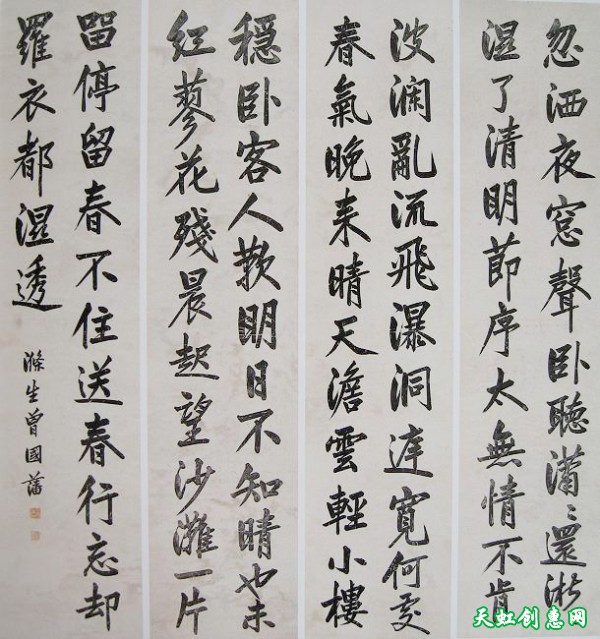 忽洒夜窓聲卧聽瀟〻還淅
湿了清明莭序太無情不肯
波瀾亂流飛瀑洞庭寬何處
春氣晚来晴天澹雲輕小樓
穏卧客人歎明日不知晴也未
紅蓼花殘晨起望沙灘一片
畱停留春不住送春行忘却
羅衣都湿透
滌生曾國藩
天虹创惠网